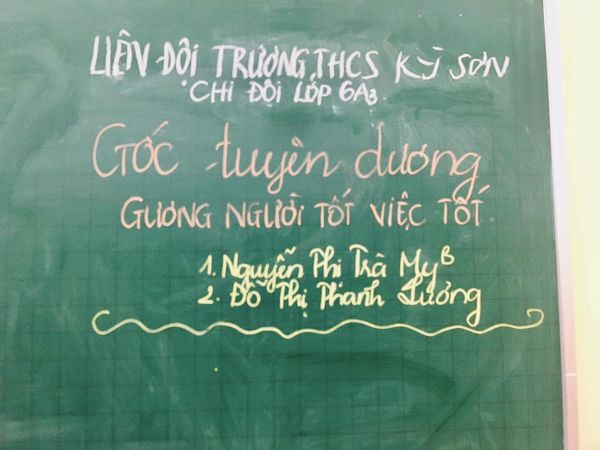 LIÊN ĐỘI TRƯỜNG THCS KỲ SƠN
CHI ĐỘI LỚP 6A3
GÓC tuyên dương
GƯƠNG NGƯỜI TỐT VIỆC TỐT
1. Nguyễn Thị Trà My B
2. Đỗ Thị Thanh Lương